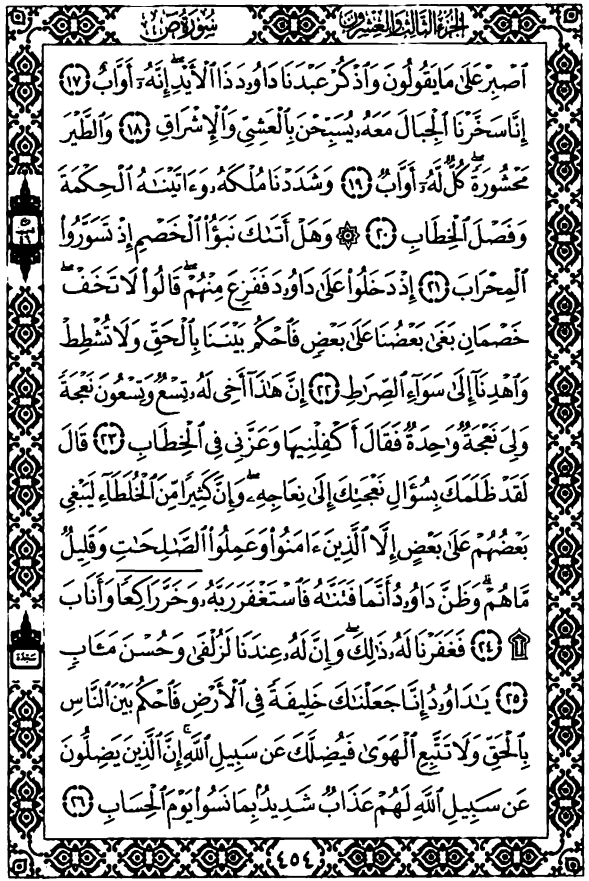 الجزء الثالث والعشرون سورة ص
ٱصۡبِرۡ عَلَىٰ مَا يَقُولُونَ وَٱذۡكُرۡ عَبۡدَنَا دَاوُۥدَ ذَا ٱلۡأَيۡدِۖ إِنَّهُۥٓ أَوَّابٌ ١٧
إِنَّا سَخَّرۡنَا ٱلۡجِبَالَ مَعَهُۥ يُسَبِّحۡنَ بِٱلۡعَشِيِّ وَٱلۡإِشۡرَاقِ ١٨ وَٱلطَّيۡرَ
مَحۡشُورَةٗۖ كُلّٞ لَّهُۥٓ أَوَّابٞ ١٩ وَشَدَدۡنَا مُلۡكَهُۥ وَءَاتَيۡنَٰهُ ٱلۡحِكۡمَةَ
وَفَصۡلَ ٱلۡخِطَابِ ٢٠ ۞ وَهَلۡ أَتَىٰكَ نَبَؤُاْ ٱلۡخَصۡمِ إِذۡ تَسَوَّرُواْ
ٱلۡمِحۡرَابَ ٢١ إِذۡ دَخَلُواْ عَلَىٰ دَاوُۥدَ فَفَزِعَ مِنۡهُمۡۖ قَالُواْ لَا تَخَفۡۖ
خَصۡمَانِ بَغَىٰ بَعۡضُنَا عَلَىٰ بَعۡضٖ فَٱحۡكُم بَيۡنَنَا بِٱلۡحَقِّ وَلَا تُشۡطِطۡ
وَٱهۡدِنَآ إِلَىٰ سَوَآءِ ٱلصِّرَٰطِ ٢٢ إِنَّ هَٰذَآ أَخِي لَهُۥ تِسۡعٞ وَتِسۡعُونَ نَعۡجَةٗ
وَلِيَ نَعۡجَةٞ وَٰحِدَةٞ فَقَالَ أَكۡفِلۡنِيهَا وَعَزَّنِي فِي ٱلۡخِطَابِ ٢٣ قَالَ
لَقَدۡ ظَلَمَكَ بِسُؤَالِ نَعۡجَتِكَ إِلَىٰ نِعَاجِهِۦۖ وَإِنَّ كَثِيرٗا مِّنَ ٱلۡخُلَطَآءِ لَيَبۡغِي
بَعۡضُهُمۡ عَلَىٰ بَعۡضٍ إِلَّا ٱلَّذِينَ ءَامَنُواْ وَعَمِلُواْ ٱلصَّٰلِحَٰتِ وَقَلِيلٞ
مَّا هُمۡۗ وَظَنَّ دَاوُۥدُ أَنَّمَا فَتَنَّٰهُ فَٱسۡتَغۡفَرَ رَبَّهُۥ وَخَرَّۤ رَاكِعٗاۤ وَأَنَابَ
۩ ٢٤ فَغَفَرۡنَا لَهُۥ ذَٰلِكَۖ وَإِنَّ لَهُۥ عِندَنَا لَزُلۡفَىٰ وَحُسۡنَ مَـَٔابٖ
سجدة
٢٥ يَٰدَاوُۥدُ إِنَّا جَعَلۡنَٰكَ خَلِيفَةٗ فِي ٱلۡأَرۡضِ فَٱحۡكُم بَيۡنَ ٱلنَّاسِ
بِٱلۡحَقِّ وَلَا تَتَّبِعِ ٱلۡهَوَىٰ فَيُضِلَّكَ عَن سَبِيلِ ٱللَّهِۚ إِنَّ ٱلَّذِينَ يَضِلُّونَ
عَن سَبِيلِ ٱللَّهِ لَهُمۡ عَذَابٞ شَدِيدُۢ بِمَا نَسُواْ يَوۡمَ ٱلۡحِسَابِ ٢٦
٤٥٤